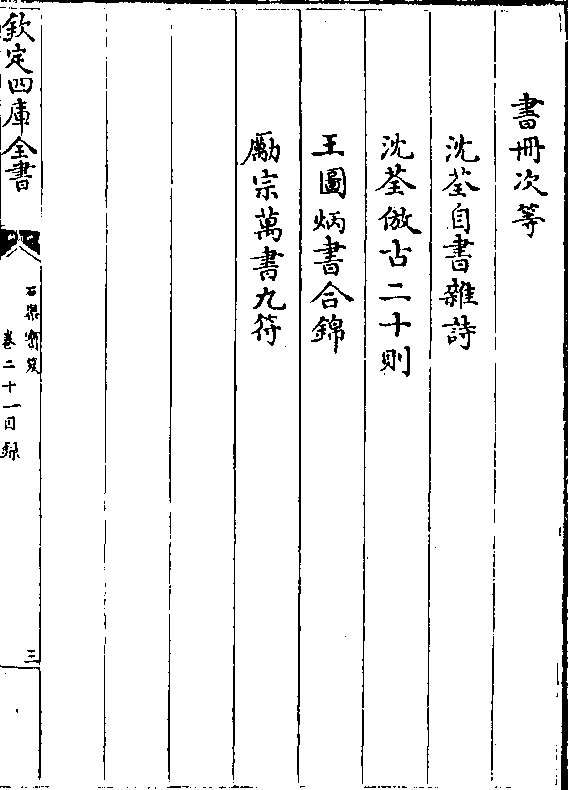 書冊次等
沈荃自書雜詩
沈荃倣古二十則
王圖炳書合錦
勵宗萬書九符
欽定四庫全書
石渠寶笈
卷二十一目錄
三